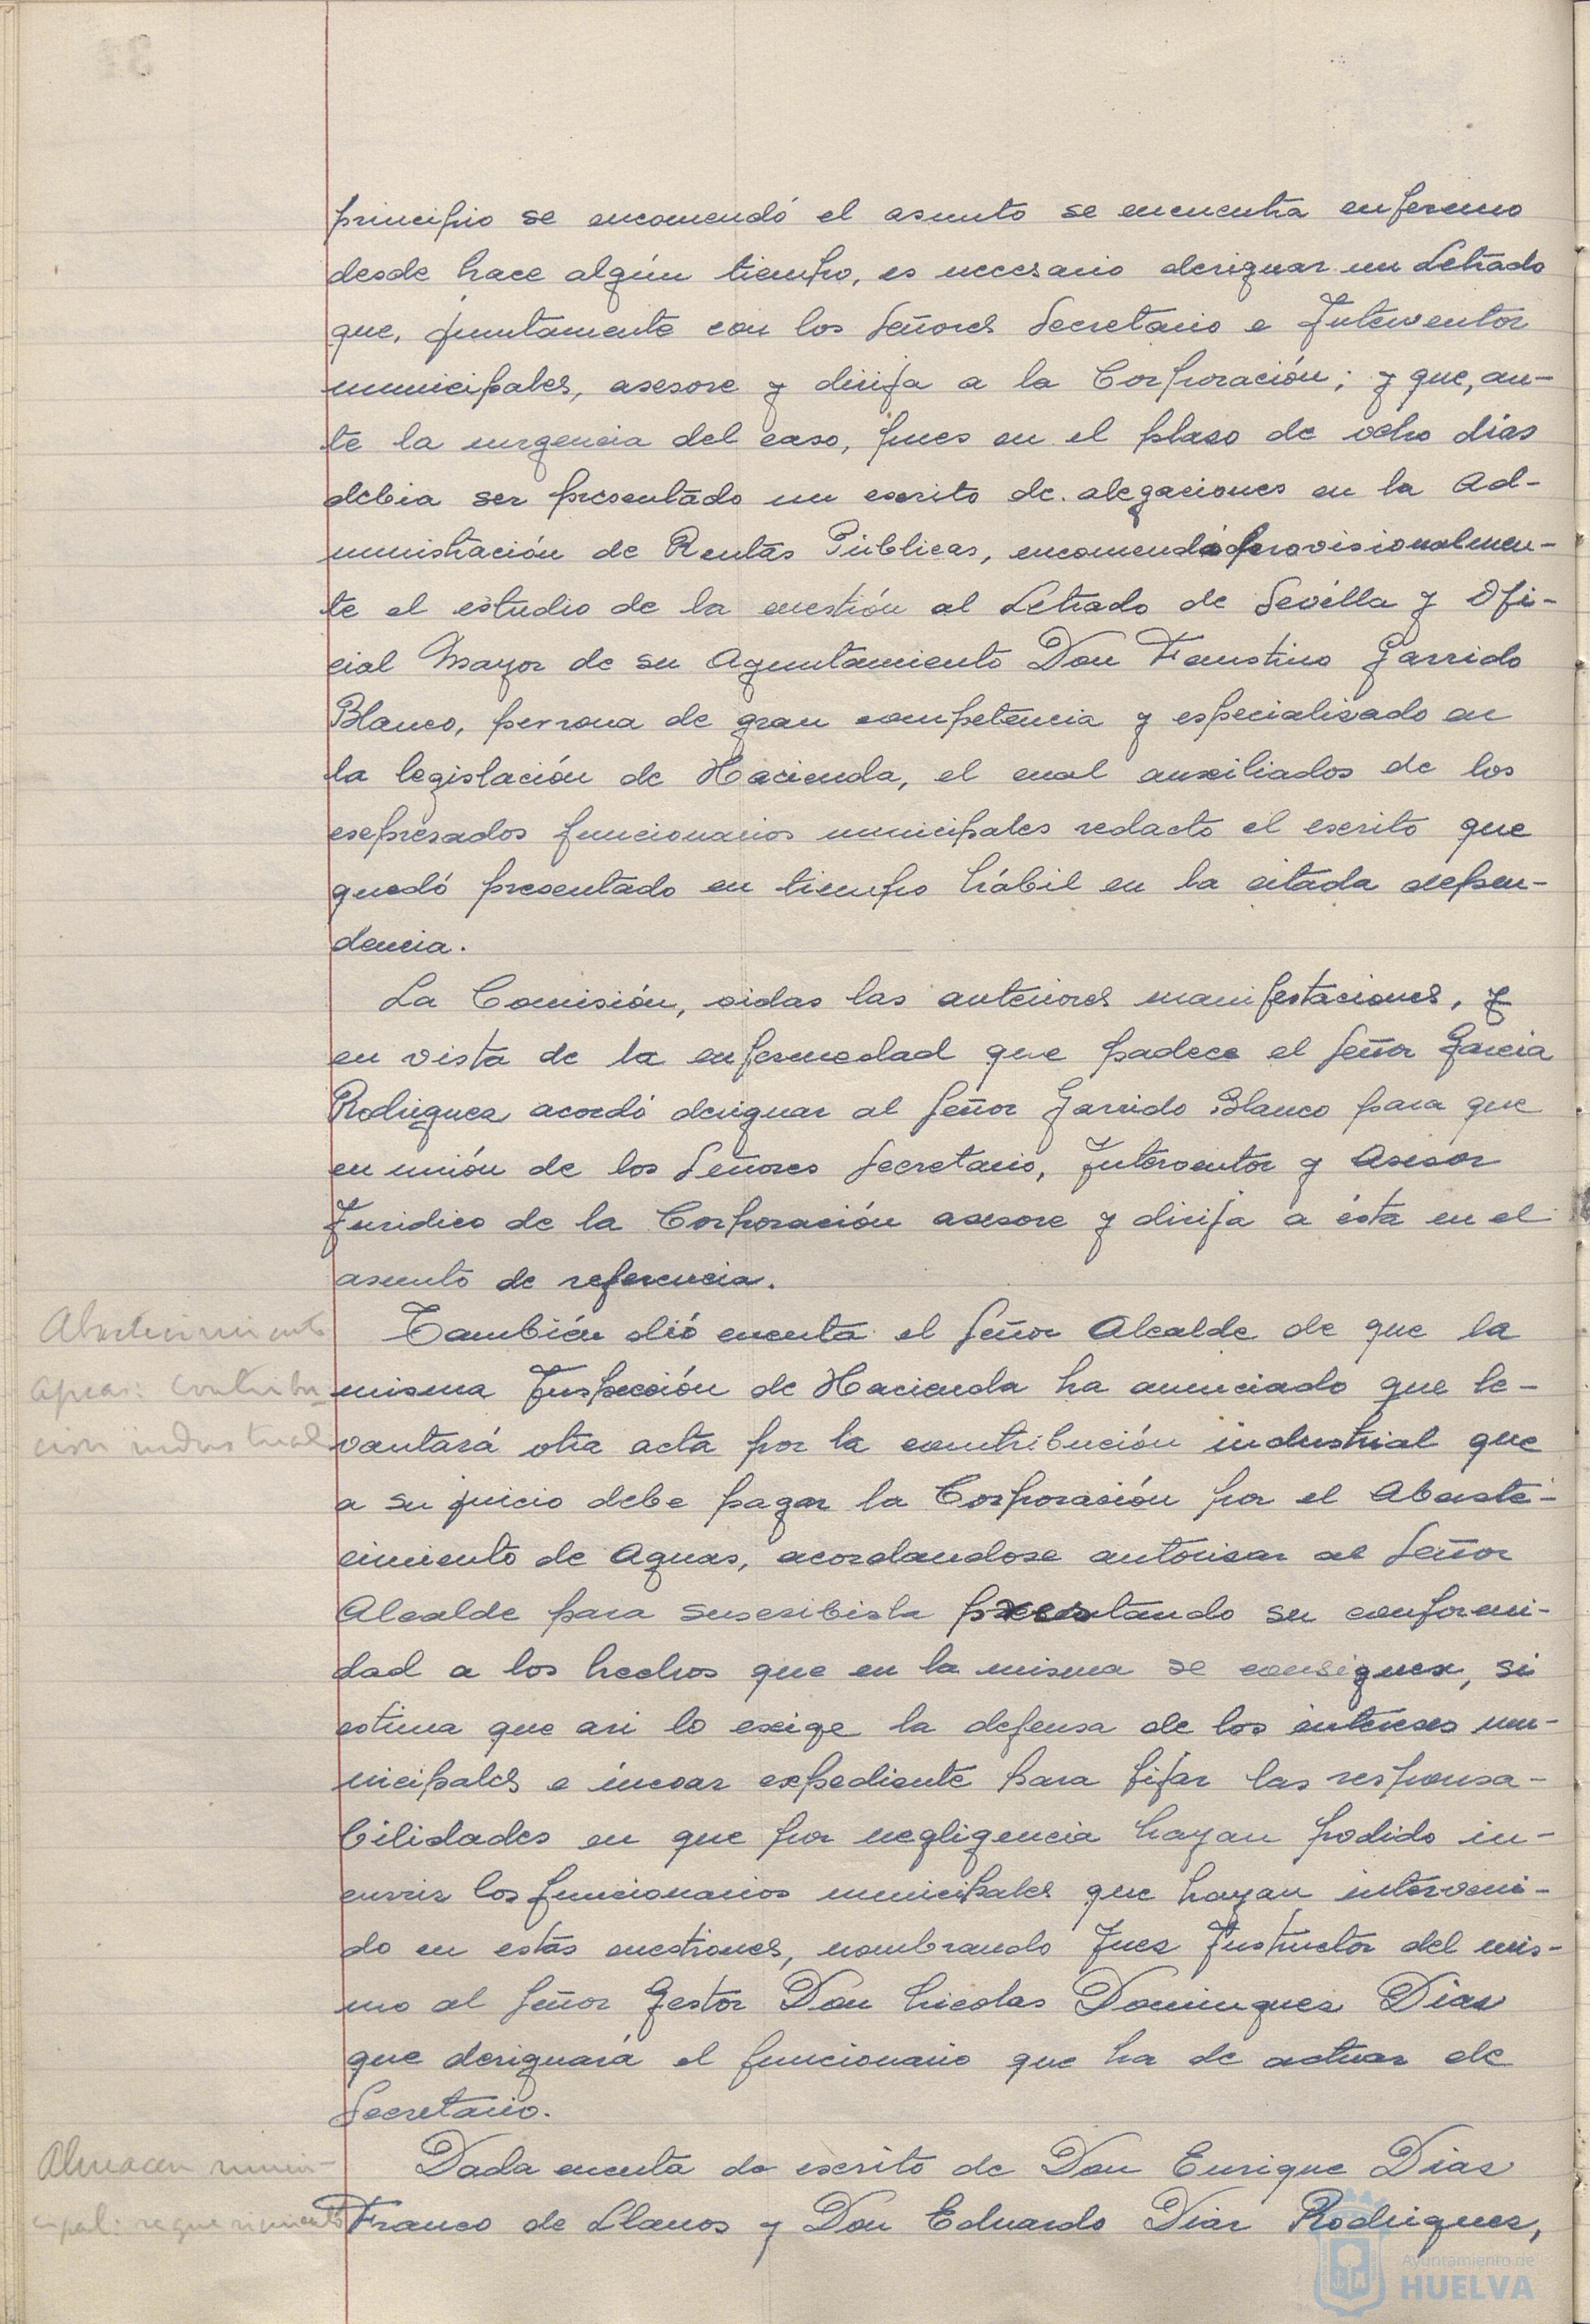 principio se encomendó el asunto se encuentra enfermo
desde hace algún tiempo, es necesario designar un Letrado
que, juntamente con los Señores Secretario e Interventor
municipales, asesore y dirija a la Corporación; y que, an-
te la urgencia del caso, pues en el plazo de ocho días
debia ser presentado un escrito de alegaciones en la Ad-
ministración de Rentas Públicas, encomendó provisionalmen-
te el estudio de la cuestión al Letrado de Sevilla y Ofi-
cial Mayor de su Ayuntamiento Don Faustino Garrido
Blanco, persona de gran competencia y especializado en
la legislación de Hacienda, el cual auxiliados de los
expresados funcionarios municipales redacto el escrito que
quedó presentado en tiempo hábil en la citada depen-
dencia.
La Comisión, oidas las anteriores manifestaciones, y
en vista de la enfermedad que padece el Señor Garcia
Rodriguez acordó designar al Señor Garrido Blanco para que
en unión de los Señores Secretario, Interventor y Asesor
Juridico de la Corporación asesore y dirija a ésta en el
asunto de referencia.
Abastecimiento
Aguas: contribu-
cion industrial
También dió cuenta el Señor Alcalde de que la
misma Inspección de Hacienda ha anunciado que le-
vantará otra acta por la contribución industrial que
a su juicio debe pagar la Corporación por el Abaste-
cimiento de Aguas, acordandose autorizar al Señor
Alcalde para suscribirla prestando su conformi-
dad a los hechos que en la misma se consignen, si
estima que asi lo exige la defensa de los intereses mu-
nicipales e incoar expediente para fijar las responsa-
bilidades en que por negligencia hayan podido in-
currir los funcionarios municipales que hayan interveni-
do en estas cuestiones, nombrando Juez Instructor del mis-
mo al Señor Gestor Don Nicolas Dominguez Diaz
que designará el funcionario que ha de actuar de
Secretario.
Almacen muni-
cipal: requerimiento
Dada cuenta de escrito de Don Enrique Diaz
Franco de Llanos y Don Eduardo Diaz Rodriguez,
Ayuntamiento de
HUELVA